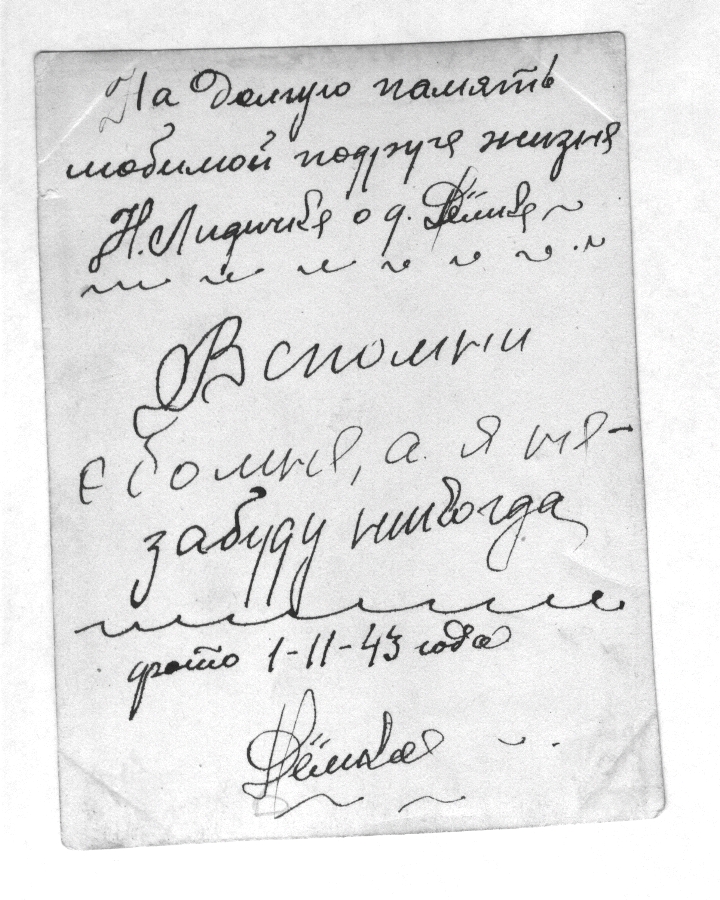 На долгую память
любимой подруге жизни
Н. Лидичке о д. Дёмке
Вспомни
обо мне, а я не-
забуду никогда
фото 1-11-43 года
Дёмка